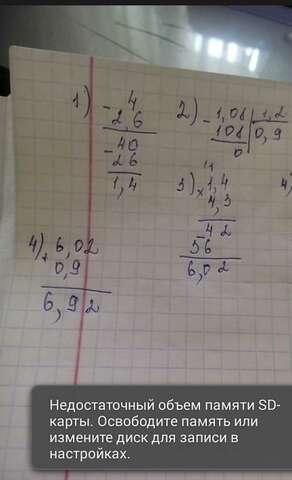 1) - 4
2,6
- 40
26
1,4
2) - 1,08 | 1,2
108 | 0,9
0
3) × 1,4
4,3
42
56
6,02
4) + 6,02
0,9
6,92
4)
Недостаточный объем памяти SD-
карты. Освободите память или
измените диск для записи в
настройках.